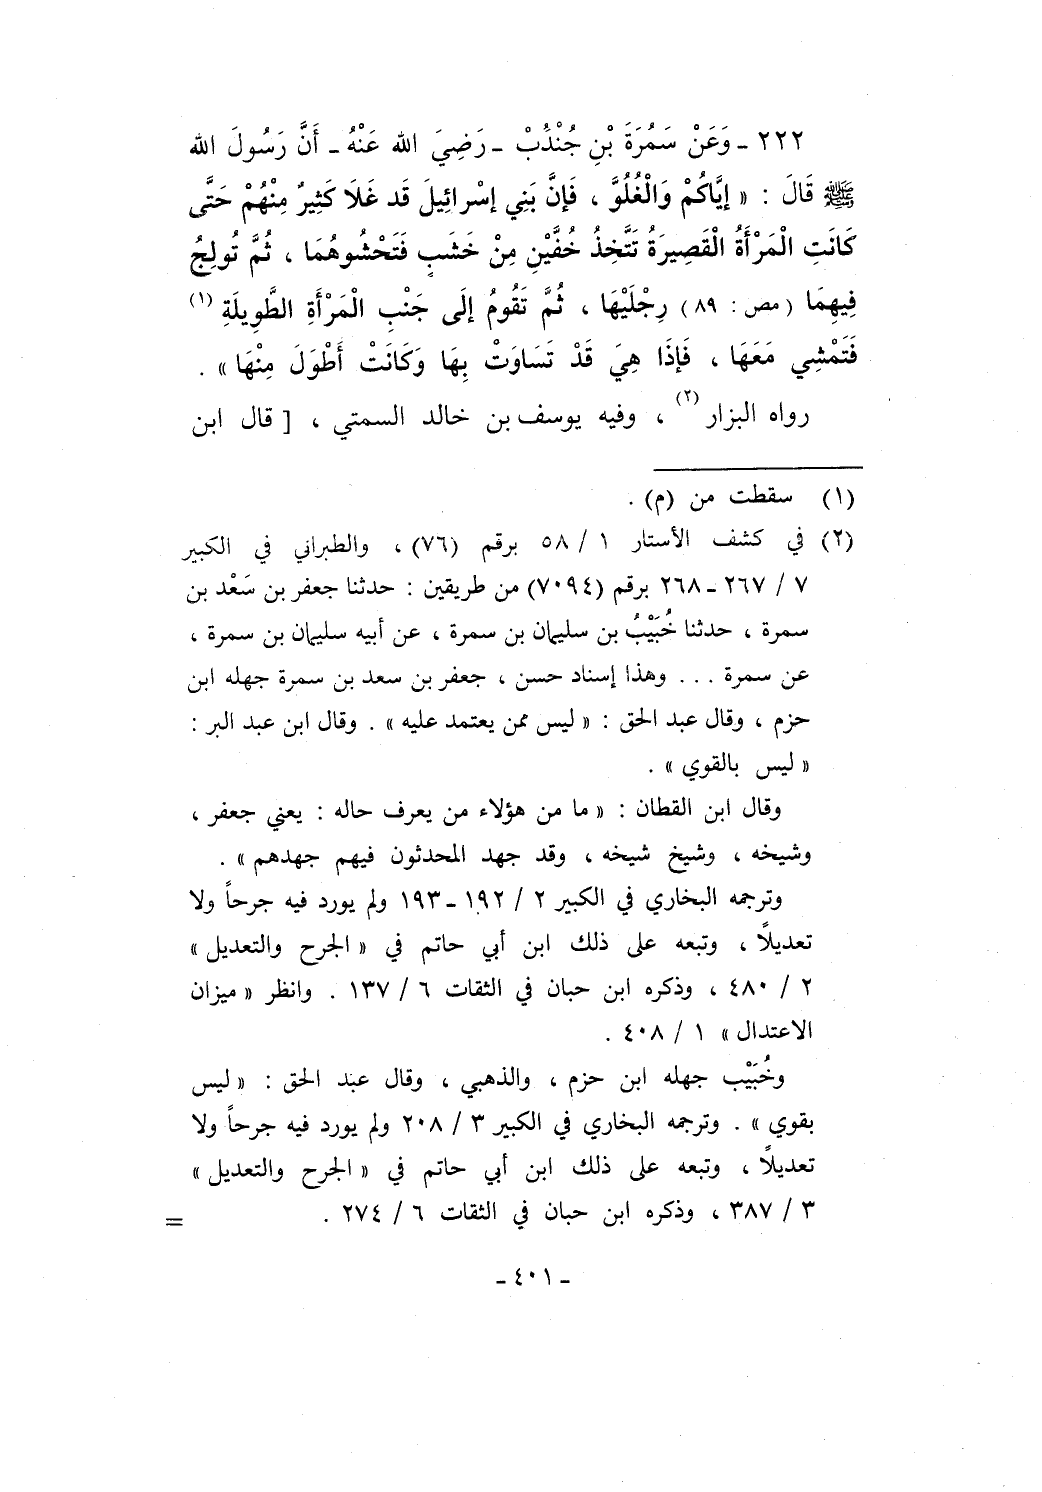 ٢٢٢ ـ وَعَنْ سَمُرَةَ بْنِ جُنْدُبْ ـ رَضِيَ الله عَنْهُ ـ أَنَّ رَسُولَ الله
ﷺ قَالَ : « إيَّاكُمْ وَالْغُلُوَّ ، فَإنَّ بَنِي إسْرائِيلَ قَد غَلَا كَثِيرٌ مِنْهُمْ حَتَّى
كَانَتِ الْمَرْأَةُ الْقَصِيرَةُ تَتَّخِذُ خُفَّيْنِ مِنْ خَشَبٍ فَتَحْشُوهُمَا ، ثُمَّ تُولِجُ
فِيهِمَا (مص : ٨٩) رِجْلَيْهَا ، ثُمَّ تَقُومُ إلَى جَنْبِ الْمَرْأَةِ الطَّوِيلَةِ (١)
فَتَمْشِي مَعَهَا ، فَإذَا هِيَ قَدْ تَسَاوَتْ بِهَا وَكَانَتْ أَطْوَلَ مِنْهَا » .
رواه البزار (٢) ، وفيه يوسف بن خالد السمتي ، [ قال ابن
(١) سقطت من (م) .
(٢) في كشف الأستار ١ / ٥٨ برقم (٧٦) ، والطبراني في الكبير
٧ / ٢٦٧ ـ ٢٦٨ برقم (٧٠٩٤) من طريقين : حدثنا جعفر بن سَعْد بن
سمرة ، حدثنا خُبَيْبُ بن سليمان بن سمرة ، عن أبيه سليمان بن سمرة ،
عن سمرة . . . وهذا إسناد حسن ، جعفر بن سعد بن سمرة جهله ابن
حزم ، وقال عبد الحق : « ليس ممن يعتمد عليه » . وقال ابن عبد البر :
« ليس بالقوي » .
وقال ابن القطان : « ما من هؤلاء من يعرف حاله : يعني جعفر ،
وشيخه ، وشيخ شيخه ، وقد جهد المحدثون فيهم جهدهم » .
وترجمه البخاري في الكبير ٢ / ١٩٢ ـ ١٩٣ ولم يورد فيه جرحاً ولا
تعديلاً ، وتبعه على ذلك ابن أبي حاتم في « الجرح والتعديل »
٢ / ٤٨٠ ، وذكره ابن حبان في الثقات ٦ / ١٣٧ . وانظر « ميزان
الاعتدال » ١ / ٤٠٨ .
وخُبَيْب جهله ابن حزم ، والذهبي ، وقال عبد الحق : « ليس
بقوي » . وترجمه البخاري في الكبير ٣ / ٢٠٨ ولم يورد فيه جرحاً ولا
تعديلاً ، وتبعه على ذلك ابن أبي حاتم في « الجرح والتعديل »
٣ / ٣٨٧ ، وذكره ابن حبان في الثقات ٦ / ٢٧٤ . =
ـ ٤٠١ ـ